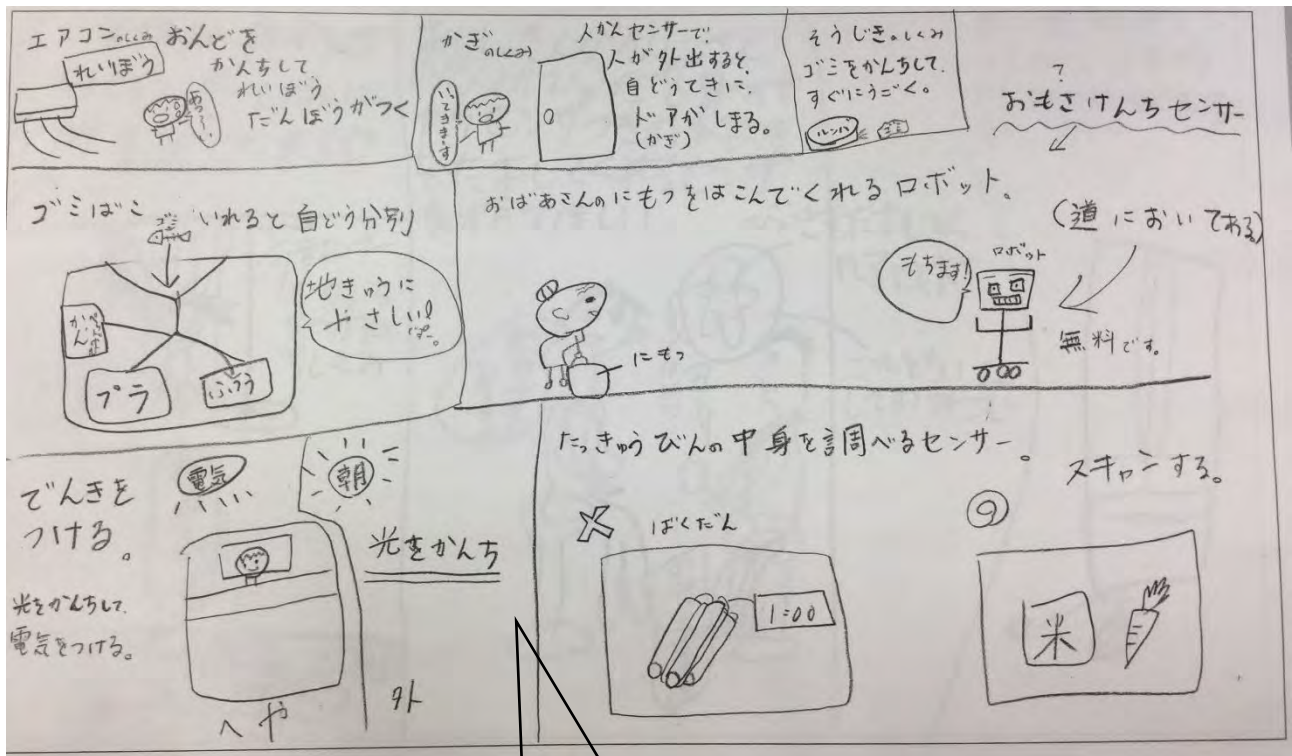 エアコンのしくみ おんどを
れいぼう
かんちして
れいぼう
だんぼうがつく
あつ〜い
かぎのしくみ
人かんセンサーで、
人が外出すると、
自どうてきに、
ドアがしまる。
(かぎ)
いってきまーす
そうじきのしくみ
ゴミをかんちして、
すぐにうごく。
ルンバ
ゴミ
?
おもさけんちセンサー
ゴミばこ
ゴミ
いれると自どう分別
かん
プラ
ふつう
地きゅうに
やさしい!
おばあさんのにもつをはこんでくれるロボット。
にもつ
もちます!
ロボット
(道においてある)
無料です。
でんきを
つける。
光をかんちして、
電気をつける。
電気
へや
朝
光をかんち
外
たっきゅうびんの中身を調べるセンサー。
スキャンする。
ばくだん
1:00
米